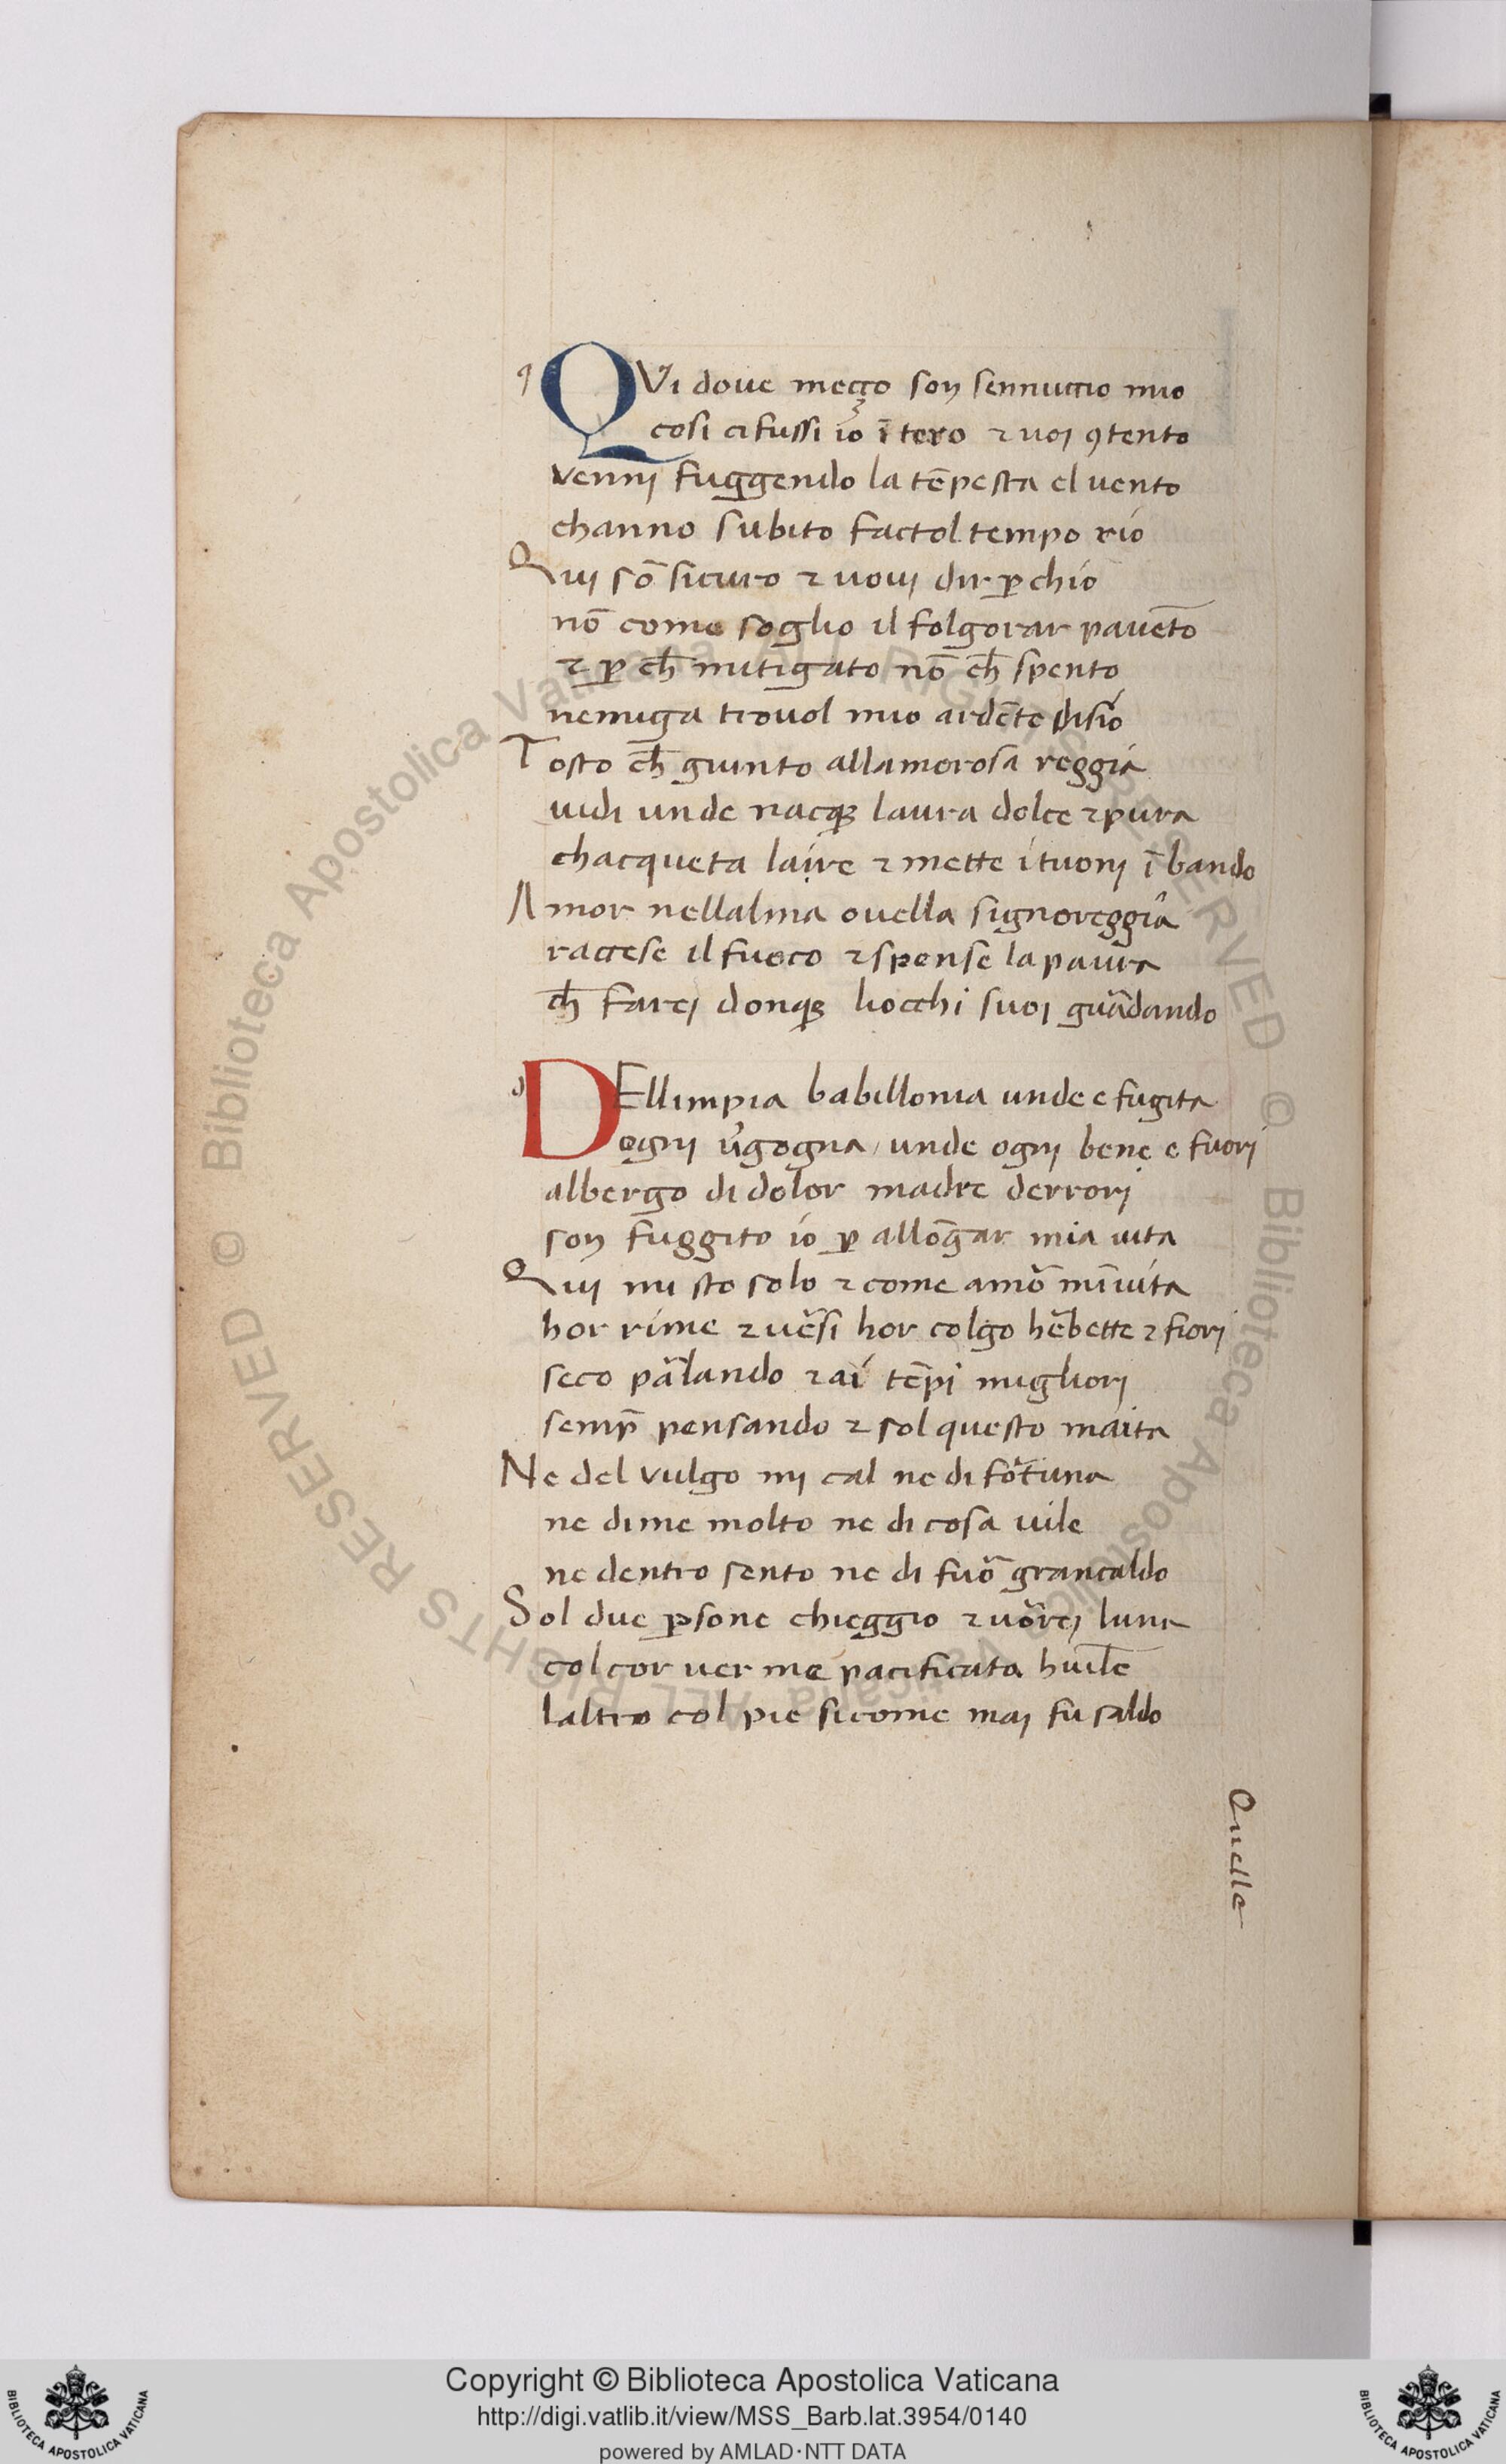 QVi doue meço son sennuccio mio
cosi ci fussi io ĩtero ⁊ uoi ꝯtento
venni fuggendo la tẽpesta el uento
channo subito factol tempo rio
Qui sõ sicuro ⁊ voui dir ꝑchio
nõ come soglio il folgorar pauẽto
⁊ ꝑ ch̄ mitigato nõ ch̄ spento
nemiga trouol mio ardẽte disio
Tosto ch̄ giunto allamorosa reggia
uidi unde nacqȝ laura dolce ⁊ pura
chacqueta laire ⁊ mette i tuoni ĩ bando
Amor nellalma ouella signoreggia
raccese il fuoco ⁊ spense la paura
ch̄ farei donqȝ liocchi suoi guãdando
DEllimpia babillonia unde e fugita
ogni ũgogna / unde ogni bene e fuori
albergo di dolor madre derrori
son fuggito io ꝑ allõgar mia uita
Qui mi sto solo ⁊ come amõ mĩuita
hor rime ⁊ uẽsi hor colgo hẽbette ⁊ fiori
seco pãlando ⁊ ai tẽpi migliori
semp̃ pensando ⁊ sol questo maita
Ne del vulgo mi cal ne di fõtuna
ne dime molto ne di cosa uile
ne dentro sento ne di fuõ gran caldo
Sol due ꝑsone chieggio ⁊ uõrei luna
col cor uer me pacificato huil̃e
laltro col pie sicome mai fu saldo
Quelle
© Biblioteca Apostolica Vaticana ALL RIGHTS RESERVED © Biblioteca Apostolica Vaticana ALL RIGHTS RESERVED
Copyright © Biblioteca Apostolica Vaticana
http://digi.vatlib.it/view/MSS_Barb.lat.3954/0140
powered by AMLAD·NTT DATA
BIBLIOTECA APOSTOLICA VATICANA
BIBLIOTECA APOSTOLICA VATICANA